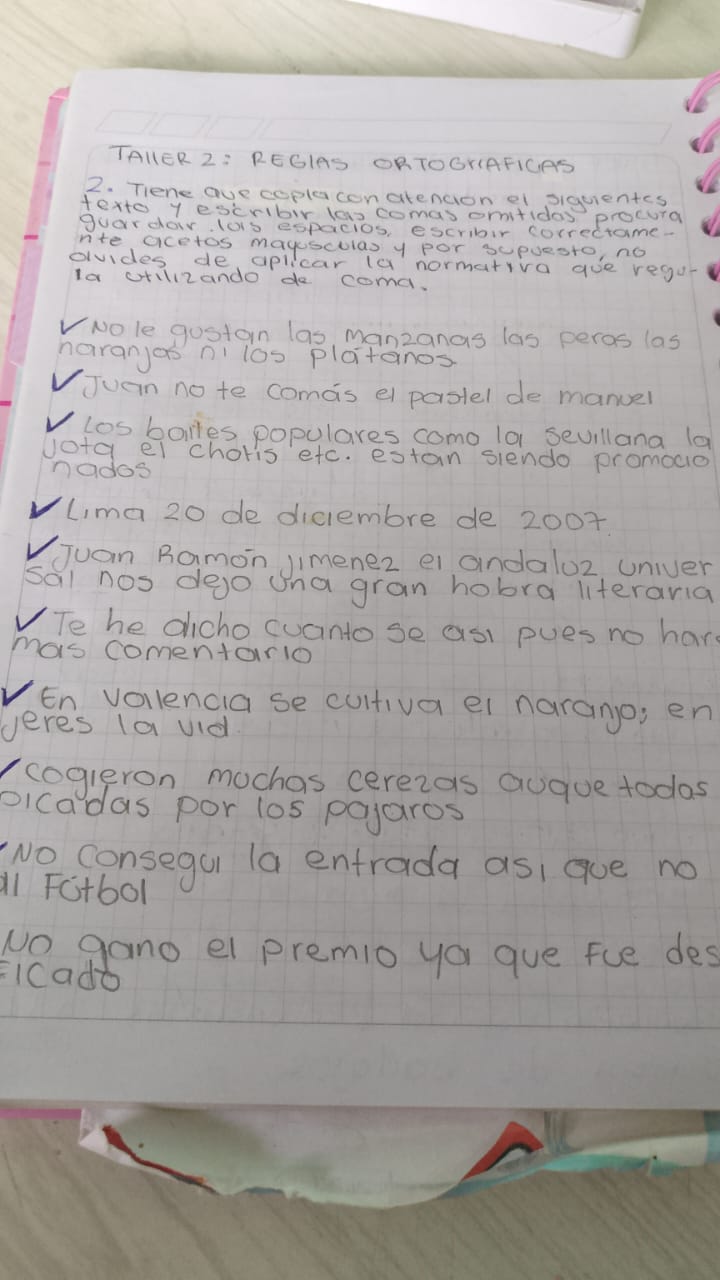 TALLER 2: REGLAS ORTOGRAFICAS
2. Tiene que copia con atencion el siguientes
texto y escribir las comas omitidas procura
guardar los espacios, escribir correctame-
nte acetos mayusculas y por supuesto, no
olvides de aplicar la normativa que regu-
la utilizando de coma.
✓ No le gustan las manzanas las peras las
naranjas ni los plátanos
✓ Juan no te comás el pastel de manuel
✓ Los bailes populares como la sevillana la
jota el chotis etc. estan siendo promocio
nados
✓ Lima 20 de diciembre de 2007
✓ Juan Ramón jimenez el andaluz univer
sal nos dejo una gran hobra literaria
✓ Te he dicho cuanto se asi pues no hare
mas comentario
✓ En valencia se cultiva el naranjo; en
jeres la vid
✓ cogieron muchas cerezas auque todas
picadas por los pajaros
✓ No consegui la entrada asi que no
al Fútbol
No gano el premio ya que fue des
ficado